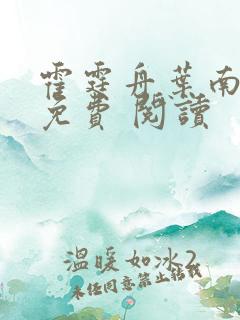 霍霆舟葉南
免費 閱讀
溫暖如冰2
未经同意禁止转载